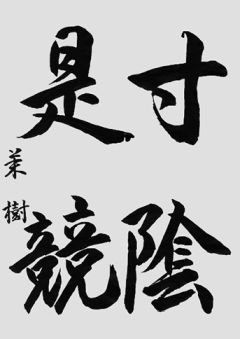 寸陰
是競
葉樹